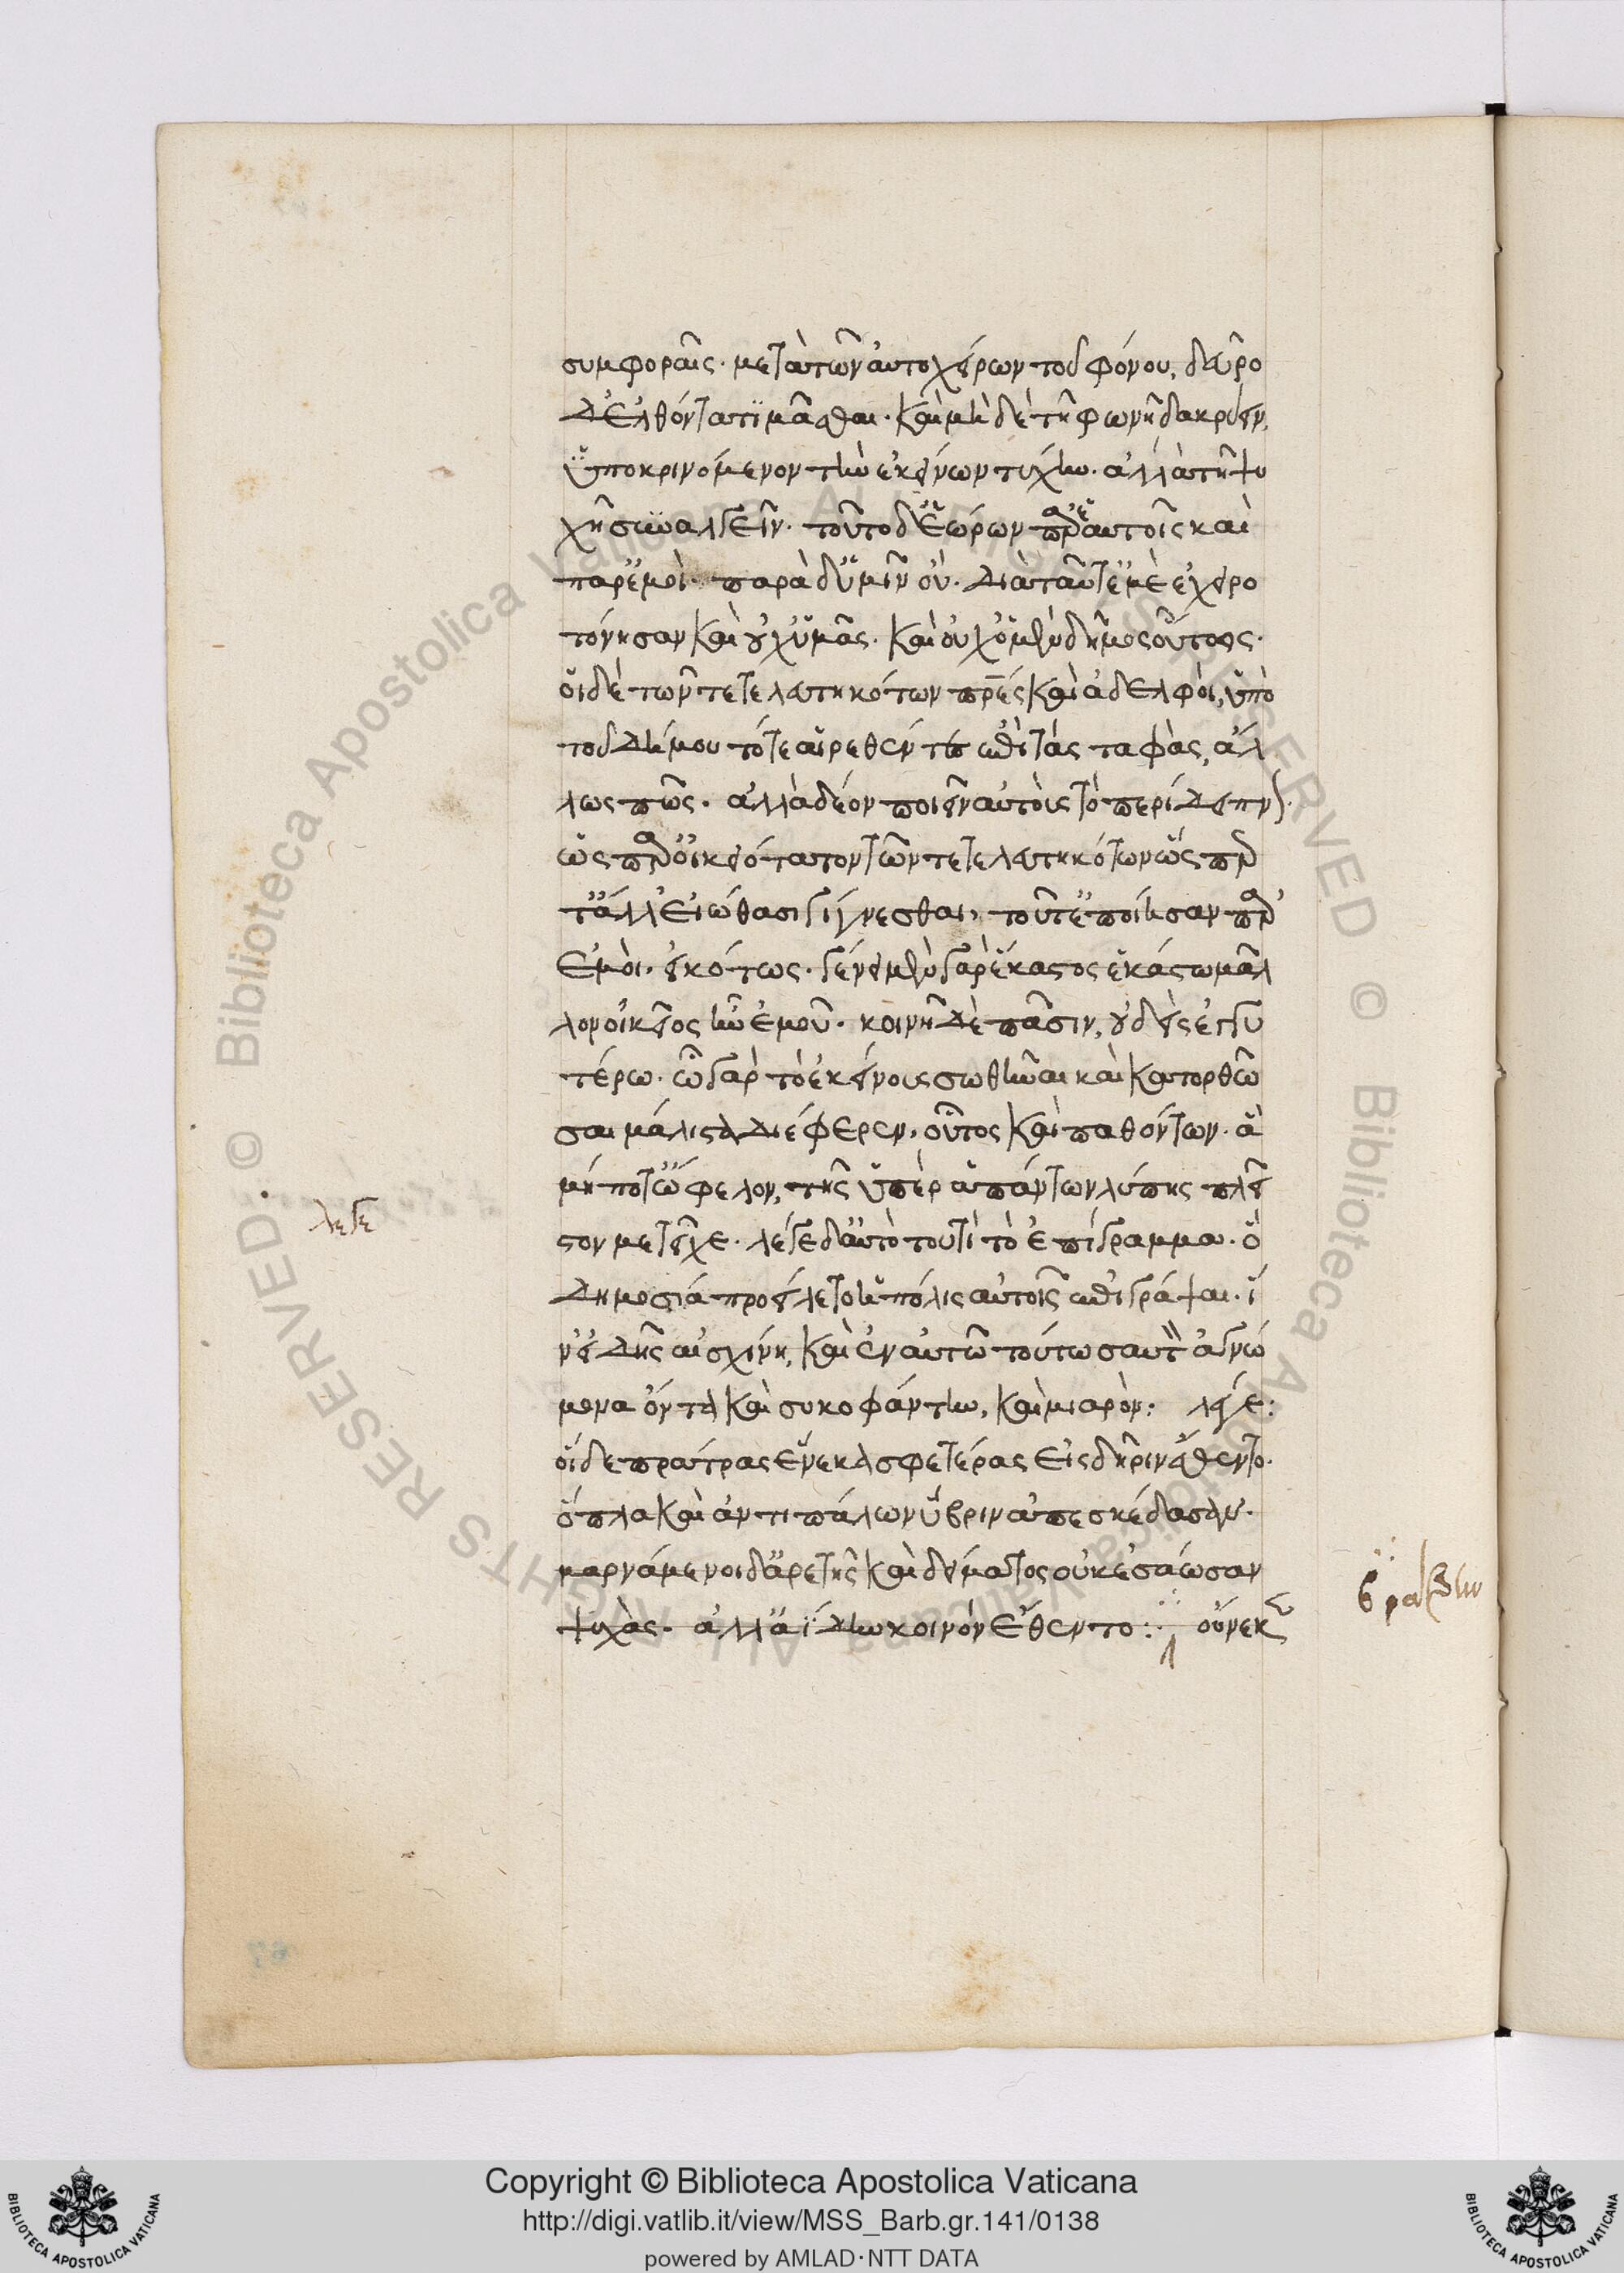 συμφοραῖς· μετὰ τῶν αὐτοχείρων τοῦ φόνου, δεῦρο
δ' ἐλθόντα τιμᾶσθαι· καὶ μὴ δὲ τῆ φωνῆ δακρύειν,
ὑποκρινόμενον τὴν ἐκείνων τύχην· ἀλλὰ τῆ ψυ
χῆ συναλγεῖν· τοῦτο δ' ἑώρων παρ' ἑαυτοῖς καὶ
παρ' ἐμοὶ· παρὰ δ' ὑμῖν οὔ· διὰ ταῦτ' ἐμὲ ἐχειρο
τόνησαν καὶ οὐχ ὑμᾶς· καὶ οὐχ ὁ μὲν δῆμος οὕτως·
οἱ δὲ τῶν τετελευτηκότων πρες καὶ ἀδελφοὶ, ὑπὸ
τοῦ δήμου τότε αἱρεθέντες ἐπὶ τὰς ταφὰς, ἄλ
λως πως· ἀλλὰ δέον ποιεῖν αὐτοὺς τὸ περίδειπνον·
ὡς παρ' οἰκειότατον τῶν τετελευτηκότων ὥσπερ
τἄλλ' εἰώθασι γίγνεσθαι, τοῦτ' ἐποίησαν παρ'
ἐμοὶ· εἰκότως· γένει μὲν γὰρ ἕκαστος ἑκάστω μᾶλ
λον οἰκεῖος ἦν ἐμοῦ· κοινῆ δὲ πᾶσιν, οὐδεὶς ἐγγυ
τέρω· ὧ γὰρ τὸ ἐκείνους σωθῆναι καὶ κατορθῶ
σαι μάλιστα διέφερεν, οὗτος καὶ παθόντων· ἃ
μή ποτ' ὤφελον, τῆς ὑπὲρ ἁπάντων λύπης πλεῖ
στον μετεῖχε· λέγε δ' αὐτὸ τουτὶ τὸ ἐπίγραμμα· ὃ
δημοσία προείλετο ἡ πόλις αὐτοῖς ἐπιγράψαι· ἵ
ν' εἰδῆς αἰσχίνη, καὶ ἐν αὐτῶ τούτω σαυτὸν ἀγνώ
μονα ὄντα καὶ συκοφάντην, καὶ μιαρὸν: λέγε:
οἵδε πράτρας ἕνεκα σφετέρας εἰς δῆριν ἔθεντο·
ὅπλα καὶ ἀντιπάλων ὕβριν ἀπεσκέδασαν·
μαρνάμενοι δ' ἀρετῆς καὶ δείματος οὐκ ἐσάωσαν
ψυχὰς· ἀλλ' ἀΐδην κοινὸν ἔθεντο: οὕνεκεν
λεγε
βραβην
Copyright © Biblioteca Apostolica Vaticana
http://digi.vatlib.it/view/MSS_Barb.gr.141/0138
powered by AMLAD·NTT DATA